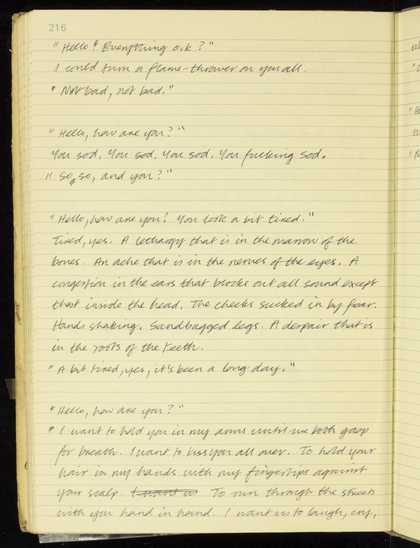 216
"Hello! Everything o.k.?"
I could turn a flame-thrower on you all.
"Not bad, not bad."
"Hello, how are you?"
You sod. You sod. You sod. You fucking sod.
"So, so, and you?"
"Hello, how are you? You look a bit tired."
Tired, yes. A lethargy that is in the marrow of the
bones. An ache that is in the nerves of the eyes. A
congestion in the ears that blocks out all sound except
that inside the head. The cheeks sucked in by fear.
Hands shaking. Sandbagged legs. A despair that is
in the roots of the teeth.
"A bit tired, yes, it's been a long day."
"Hello, how are you?"
"I want to hold you in my arms until we both gasp
for breath. I want to kiss you all over. To hold your
hair in my hands with my fingertips against
your scalp. I want us To run through the streets
with you hand in hand. I want us to laugh, cry,